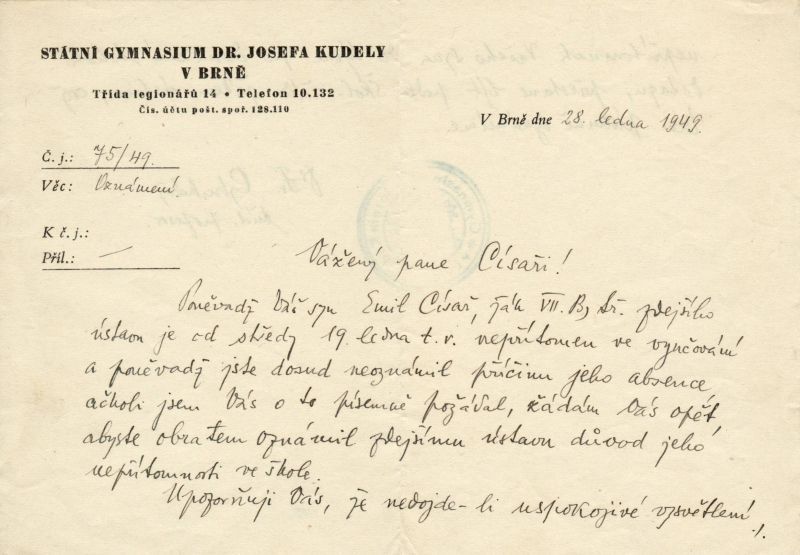 STÁTNÍ GYMNASIUM DR. JOSEFA KUDELY
V BRNĚ
Třída legionářů 14 • Telefon 10.132
Čís. účtu pošt. spoř. 128.110
V Brně dne 28. ledna 1949.
Č. j.: 75/49.
Věc: Oznámení.
K č. j.:
Příl.: —
Vážený pane Císaři!
Poněvadž Váš syn Emil Císař, žák VII. B tř. zdejšího
ústavu je od středy 19. ledna t. r. nepřítomen ve vyučování
a poněvadž jste dosud neoznámil příčinu jeho absence
ačkoli jsem Vás o to písemně požádal, žádám Vás opět,
abyste obratem oznámil zdejšímu ústavu důvod jeho
nepřítomnosti ve škole.
Upozorňuji Vás, že nedojde-li uspokojivé vysvětlení
./.